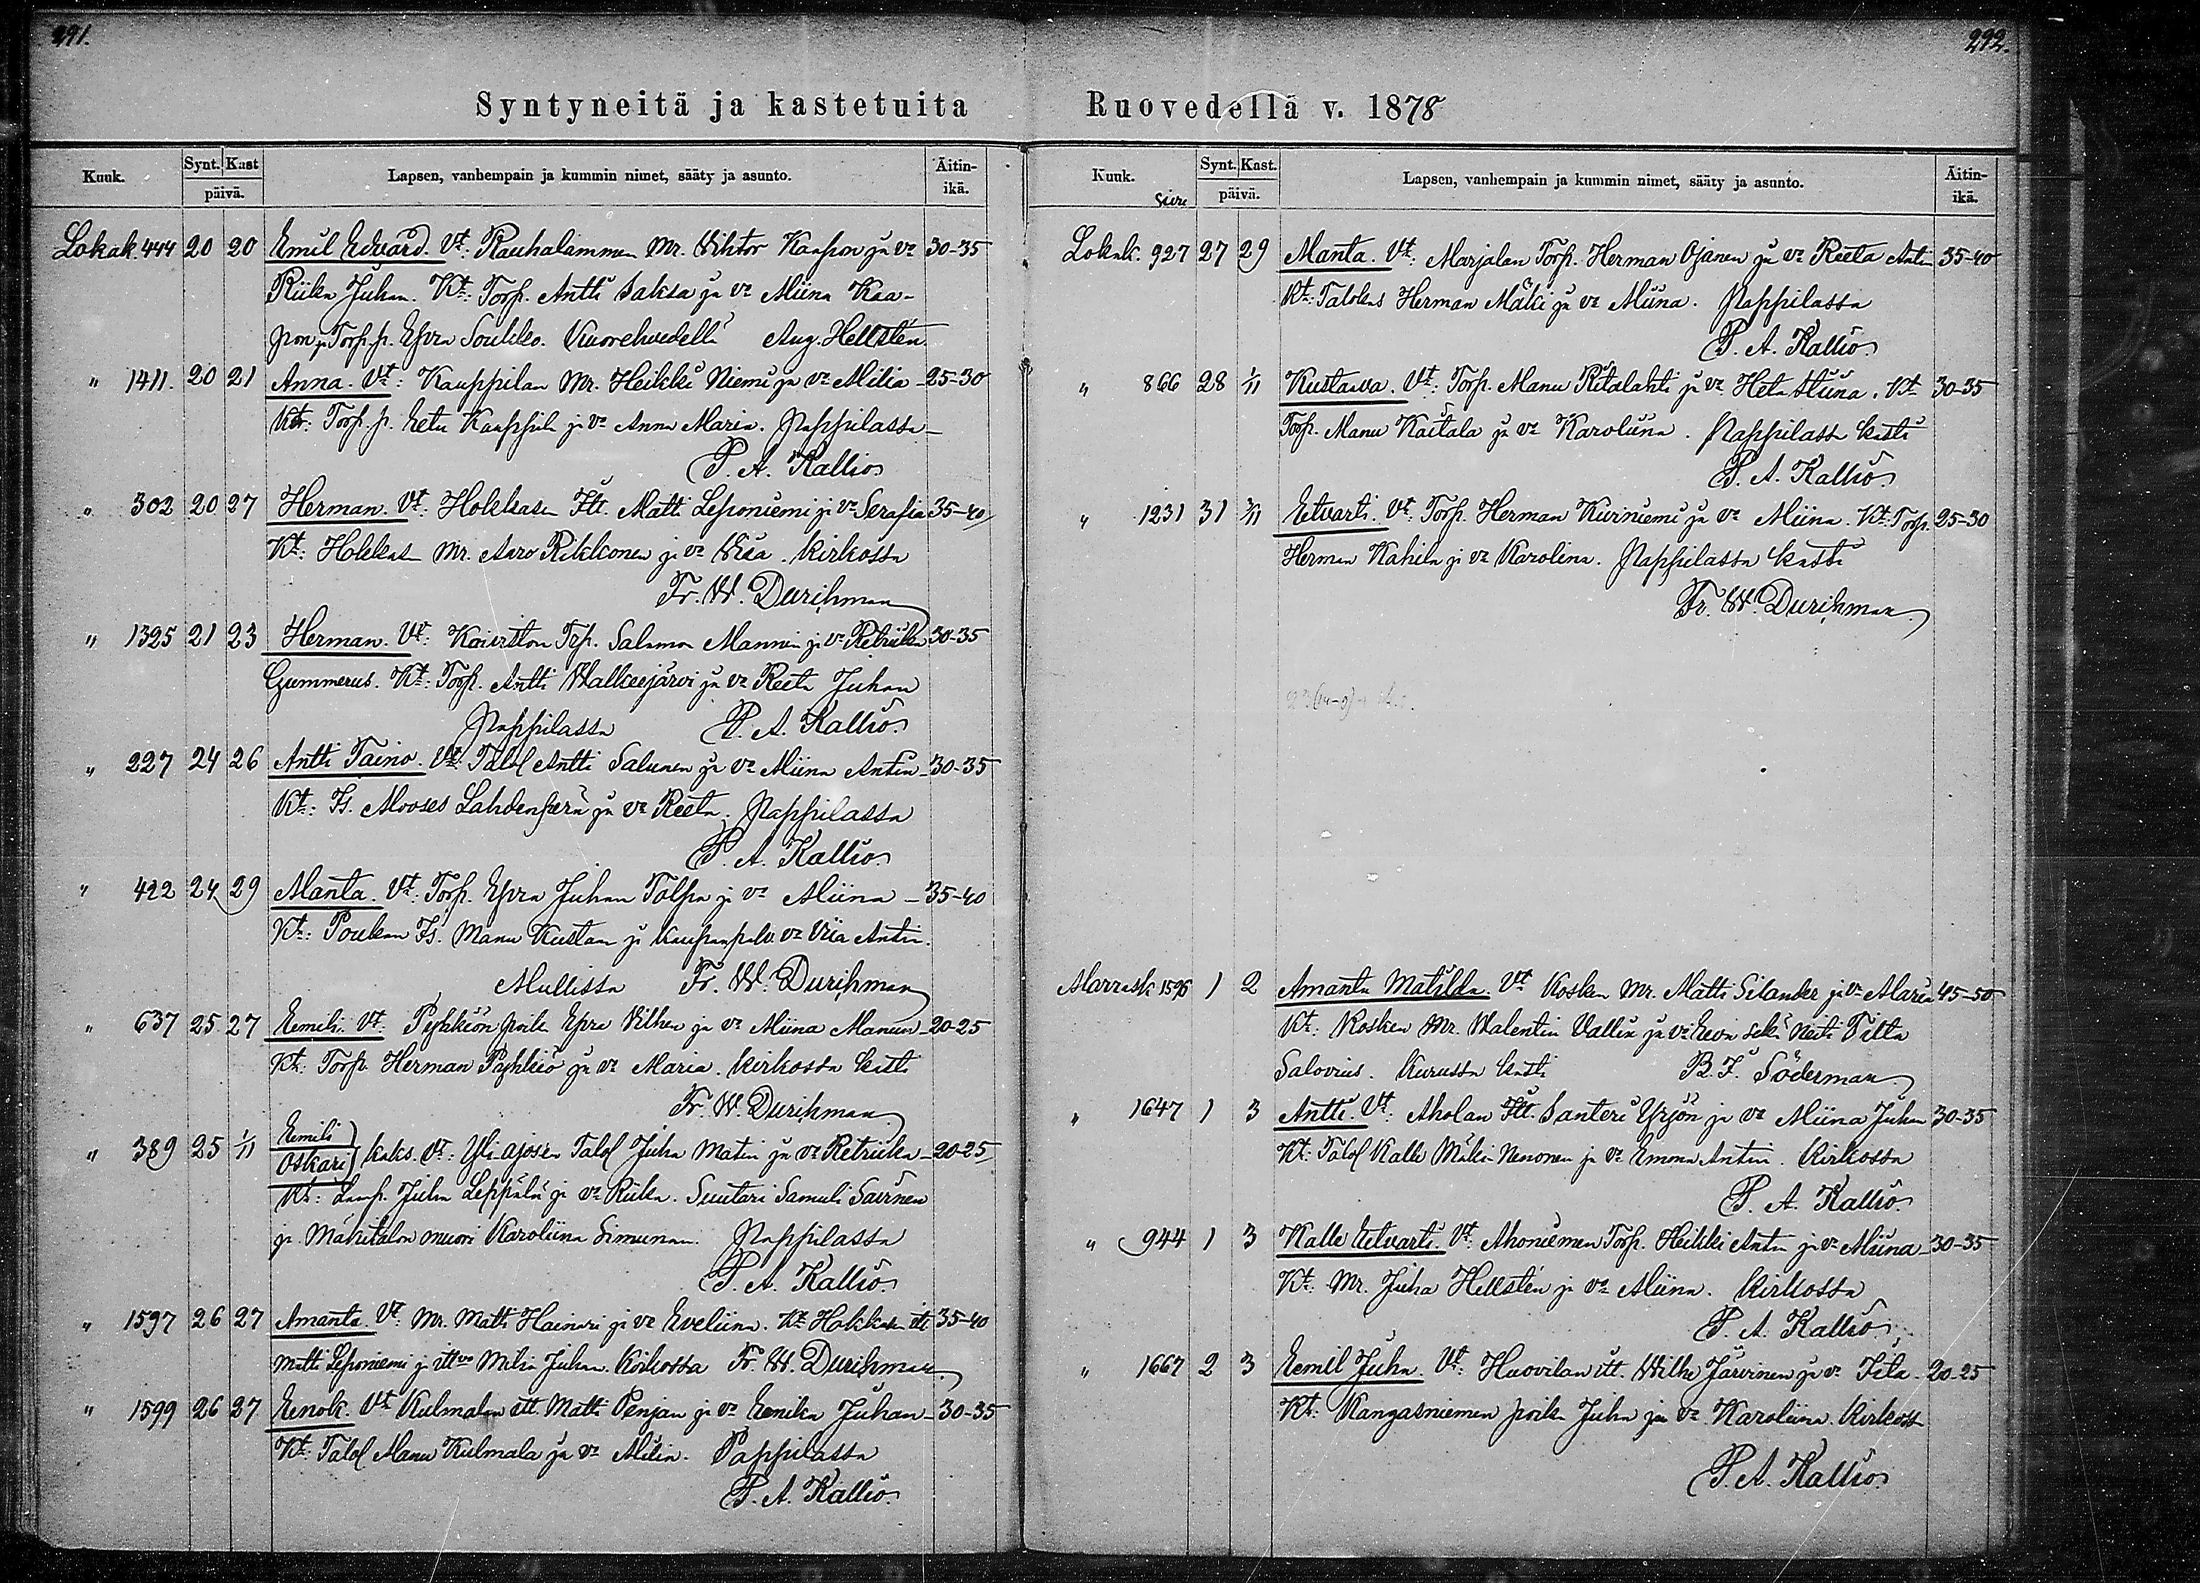 291.
Syntyneitä ja kastetuita
Kuuk. Synt. Kast päivä. Lapsen, vanhempain ja kummin nimet, sääty ja asunto. Äitin-ikä.
Lokak. 444 20 20 Emil Edvard. Vt: Rauhalammen Mr. Vihtor Kaapon ja vo 30-35
Riika Juhan. Kt: Torp. Antti Saksa ja vo Miina Kaa-
pon ja Torp. p. Epra Soukko. Kuorehvedellä Aug. Hellstén
" 1411. 20 21 Anna. Vt: Kauppilan Mr. Heikki Niemi ja vo Milia 25-30
Kt: Torp. p. Eetu Kauppila ja vo Anna Maria. Pappilassa
P. A. Kallio
" 302 20 27 Herman. Vt: Hokkasen Itt. Matti Leponiemi ja vo Serafia 35-40
Kt: Hokkas Mr. Aaro Rikkonen ja vo Viia. Kirkossa
Fr. W. Durchman
" 1325 21 23 Herman. Vt: Trp. Salomon Mannin ja vo Retriika 30-35
Gummerus. Kt: Torp. Antti Walkeejärvi ja vo Reeta Juhan
Pappilassa P. A. Kallio.
" 227 24 26 Antti Taino. Vt: Talol Antti Salunen ja vo Miina Antin 30-35
Kt: Is. Mooses Lahdenperä ja vo Reeta. Pappilassa
P. A. Kallio.
" 422 24 29 Manta. Vt: Torp. Epra Juhan Talpa ja vo Miina 35-40
Kt: Poukan Is. Manu Kustaan ja vo Viia Antin.
Mullissa Fr. W. Durchman
" 637 25 27 Eemeli. Vt: Pyhkiön poika Epra Vilhen ja vo Miina Manun 20-25
Kt: Torp. Herman Pyhkiö ja vo Maria. Kirkossa kasti
Fr. W. Durchman
" 389 25 1/11 Eemili Oskari kaks. Vt: Yli-ajosen Talol Juha Matin ja vo Retriika 20-25
Kt: Lamp. Juha Leppälä ja vo Riika. Suutari Samuli Sairnen
ja muori Karoliina Simunan. Pappilassa
P. A. Kallio.
" 1597 26 27 Amanta. Vt: Mr. Matti Hainari ja vo Eveliina. Kt: Hokkasen itt 35-40
Matti Leponiemi ja itt vo Milia Juhan. Kirkossa Fr. W. Durchman.
" 1599 26 27 Eenok. Vt: Kulmalan itt Matti Penjan ja vo Eenika Juhan 30-35
Kt: Talol Manu Kulmala ja vo Milia. Pappilassa
P. A. Kallio.
292.
Ruovedellä v. 1878
Kuuk. Sivu Synt. Kast. päivä. Lapsen, vanhempain ja kummin nimet, sääty ja asunto. Äitin-ikä.
Lokak. 927 27 29 Manta. Vt: Marjalan Torp. Herman Ojanen ja vo Reeta Antin 35-40
Kt: Talokas Herman Mäki ja vo Miina. Pappilassa
P. A. Kallio.
" 866 28 1/11 Kustaava. Vt: Torp. Manu Ritalahti ja vo Heta Stiina. Kt 30-35
Torp. Manu Kaitala ja vo Karoliina. Pappilassa kasti
P. A. Kallio.
" 1231 31 3/11 Eetvarti. Vt: Torp. Herman Kurniemi ja vo Miina. Kt: Torp. 25-30
Herman Kahila ja vo Karolina. Pappilassa kasti
Fr. W. Durchman.
Marrask 1596 1 2 Amanta Matilda. Vt Kosken Mr. Matti Silander ja vo Maria 45-50
Kt: Kosken Mr. Walentin Vallin ja vo Eeva sekä neiti Tilta
Salovius. Kurussa kasti B. F. Söderman.
" 1647 1 3 Antti. Vt: Aholan Itt. Santeri Yrjön ja vo Miina Juhan 30-35
Kt: Talol Kalle Mäki-Nenonen ja vo Emma Antin. Kirkossa
P. A. Kallio.
" 944 1 3 Kalle Eetvarti. Vt: Ahoniemen Torp. Heikki Antin ja vo Miina 30-35
Kt: Mr. Juha Hellstén ja vo Miina. Kirkossa
P. A. Kallio.
" 1667 2 3 Eemil Juha. Vt: Huovilan itt. Wilhe Järvinen ja vo Iita 20-25
Kt: Kangasniemen poika Juha ja vo Karoliina. Kirkossa
P. A. Kallio.